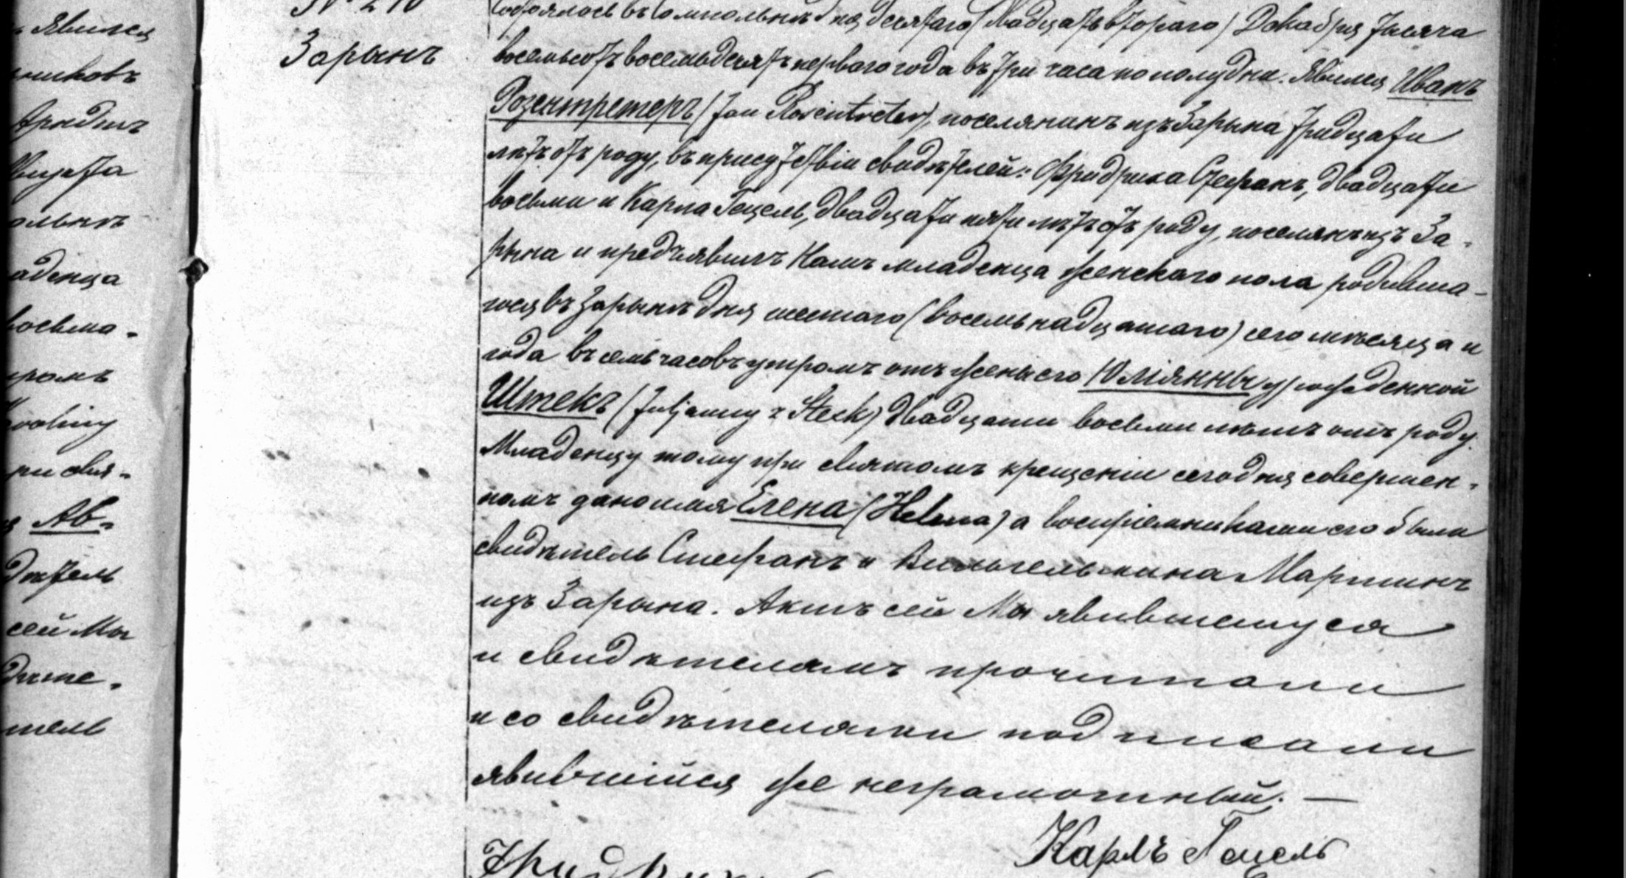 явился
№ 210
Зарынъ
Состоялось въ Сомпольнѣ дня десятаго (двадцать втораго) Декабря тысяча
восемьсотъ восемьдесятъ перваго года въ три часа по полудни. Явился Иванъ
Розентретеръ (Jan Rosentreter), поселянинъ изъ Зарына тридцати
лѣтъ отъ роду, въ присутствіи свидѣтелей: Фридриха Стефанъ, двадцати
восьми и Карла Гецель, двадцати пяти лѣтъ отъ роду, поселянъ изъ За-
рына и предъявилъ Намъ младенца женскаго пола родивша-
гося въ Зарынѣ дня шестаго (восемьнадцатаго) сего мѣсяца и
года въ семь часовъ утромъ отъ жены его Юліянны урожденной
Штекъ (Juljanny z Steck) двадцати восьми лѣтъ отъ роду.
Младенцу тому при святомъ крещеніи сегодня совершен-
номъ дано имя Елена (Helena) а воспріемниками его были
свидѣтель Стефанъ и Вильгельмина Мартинъ
изъ Зарына. Актъ сей Мы явившемуся
и свидѣтелямъ прочитали
и со свидѣтелями подписали
явившійся же неграмотный. —
Карлъ Гецель